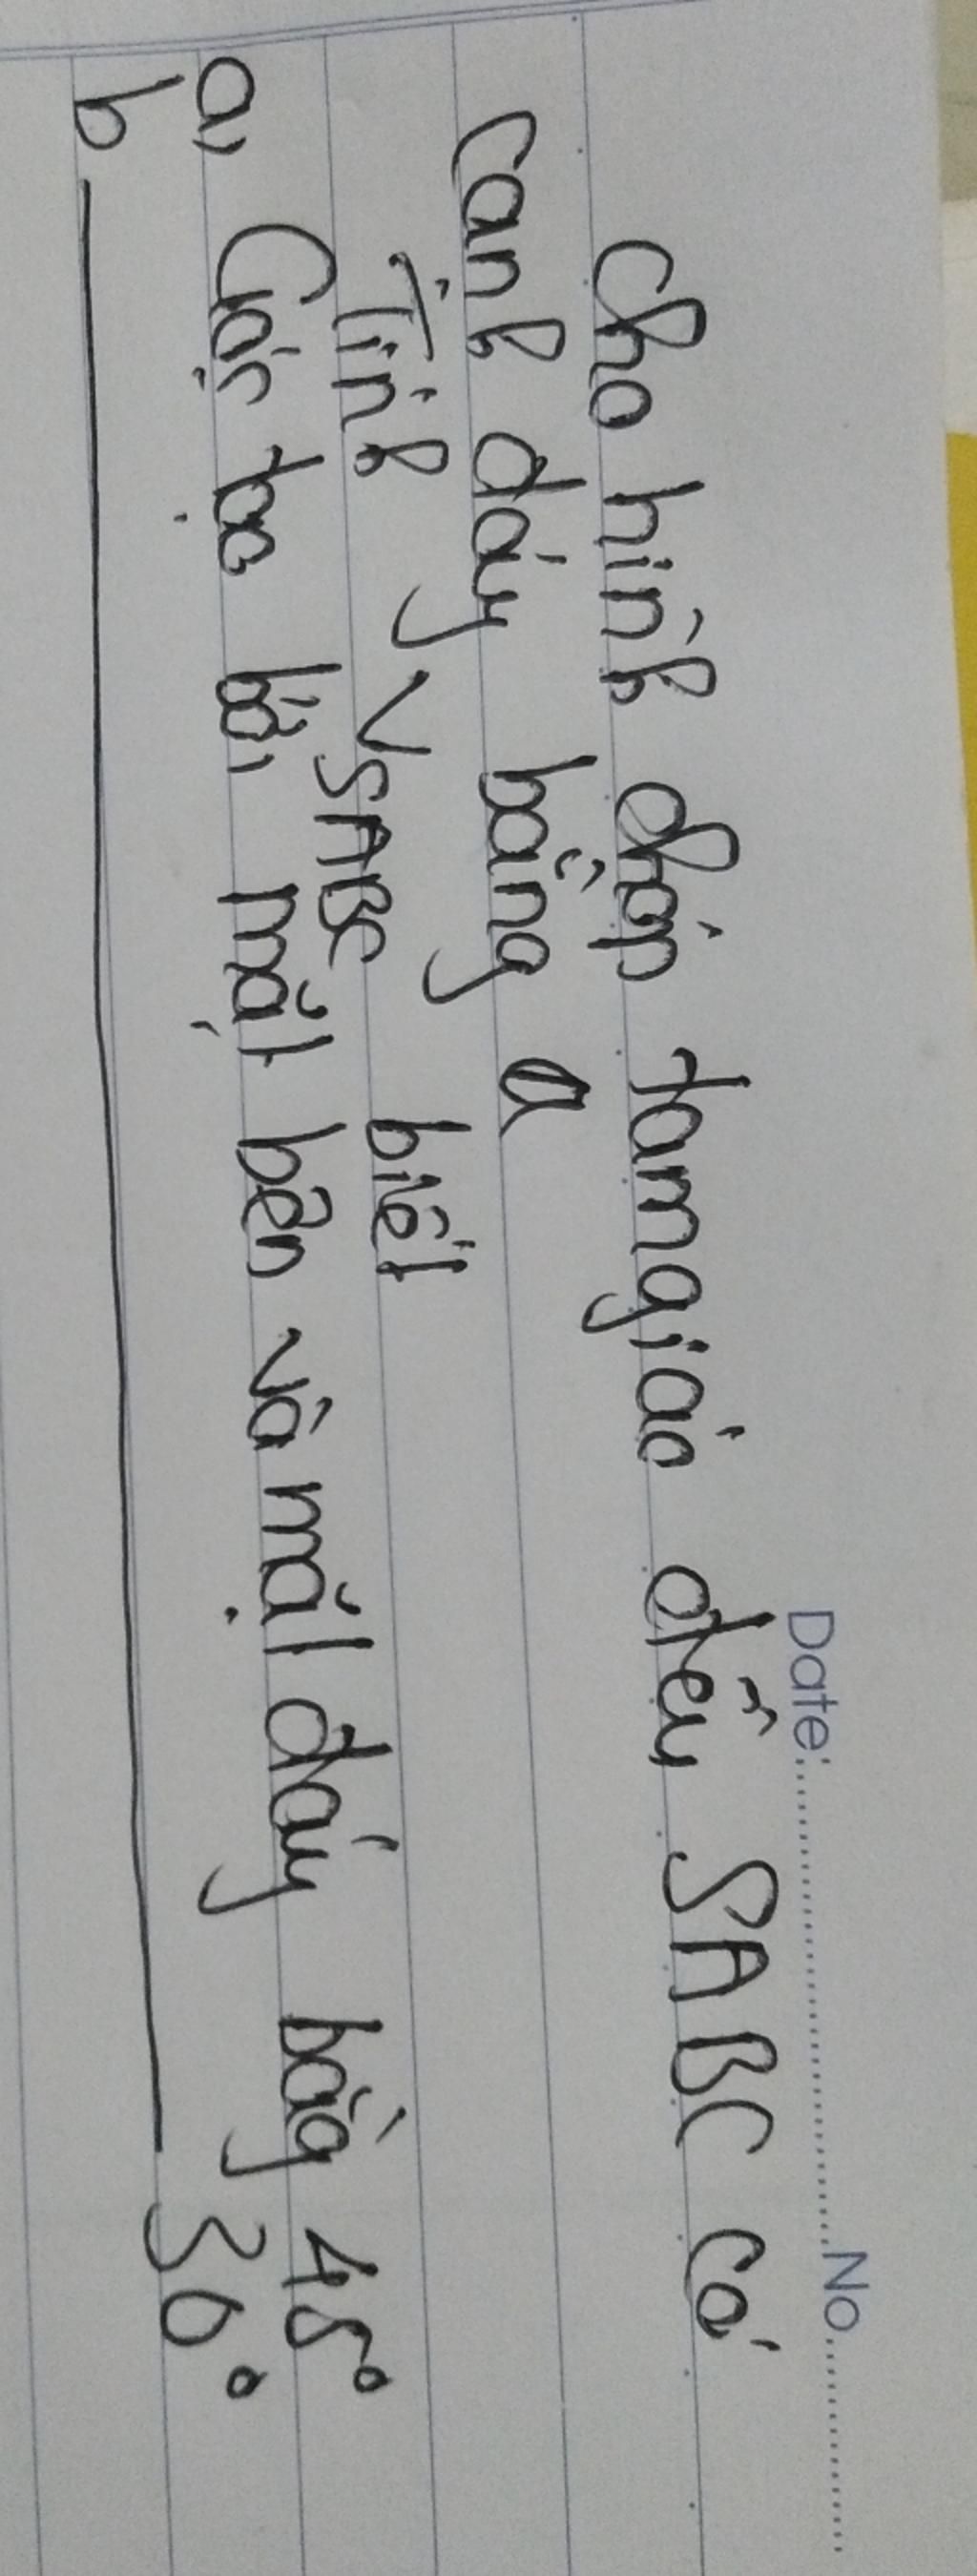 Date:...............................No..................
Cho hình chóp tam giác đều SABC có
cạnh đáy bằng a
Tính V SABC biết
a, Góc tạo bởi mặt bên và mặt đáy bằg 45°
b ——————— 30°